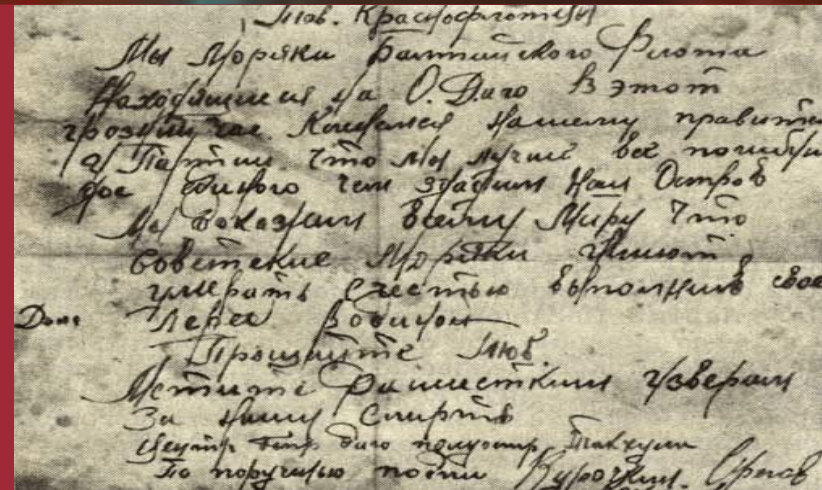 Тов. Краснофлотцы
Мы Моряки Балтийского Флота
Находящиеся на О. Даго В этот
грозный час Клянемся Нашему правите
и Партии Что Мы лучше все погибн
до единого чем здадим Наш Остров
Мы докажем всему Миру Что
Советские Моряки умеют
умерать С честью выполнив свое
Долг Перед Родиной
Прощайте Тов.
Мстите Фашистким Узверам
За Нашу Смерть
полуостр. Тахкуна
По поручнью подпи Курочкин. Орлов